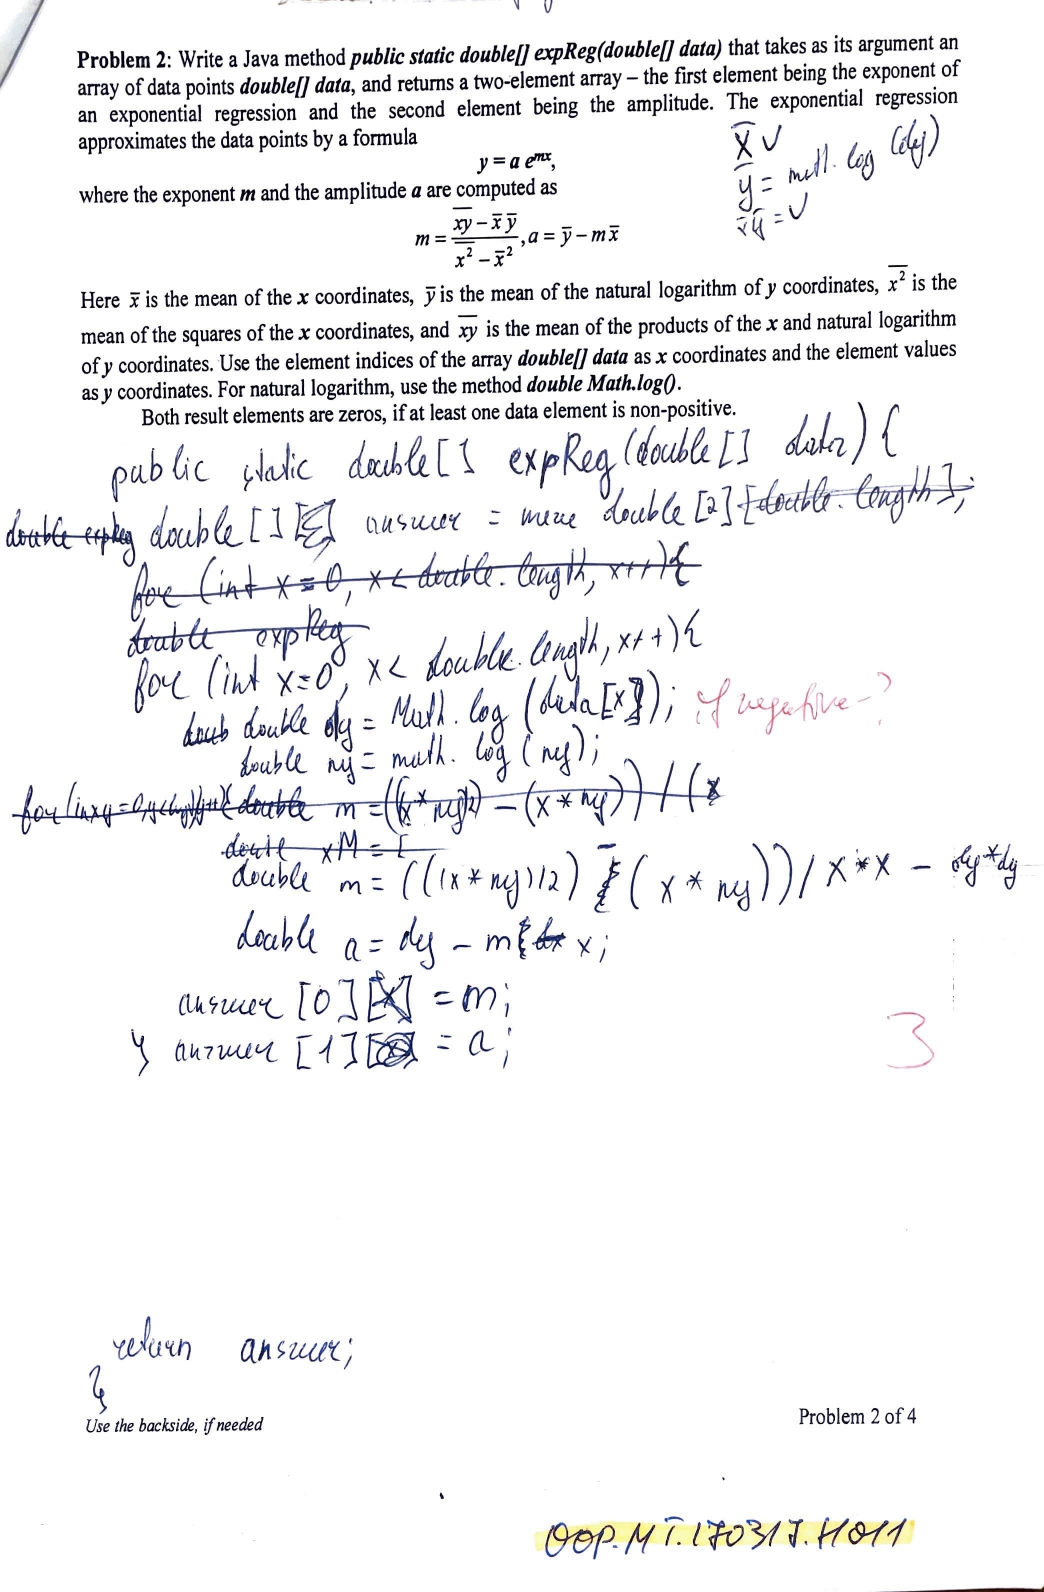 Problem 2: Write a Java method public static double[] expReg(double[] data) that takes as its argument an
array of data points double[] data, and returns a two-element array – the first element being the exponent of
an exponential regression and the second element being the amplitude. The exponential regression
approximates the data points by a formula
y = a e^{mx},
where the exponent m and the amplitude a are computed as
m = (x̅y̅ – x̅ y̅) / (x²̅ – x̅²), a = y̅ – m x̅
x̅ ✓
y̅ = math. log (dy)
x̅y̅ = ✓
Here x̅ is the mean of the x coordinates, y̅ is the mean of the natural logarithm of y coordinates, x²̅ is the
mean of the squares of the x coordinates, and x̅y̅ is the mean of the products of the x and natural logarithm
of y coordinates. Use the element indices of the array double[] data as x coordinates and the element values
as y coordinates. For natural logarithm, use the method double Math.log().
Both result elements are zeros, if at least one data element is non-positive.
public static double[] expReg (double[] data) {
double expReg double [] answer = new double [2] [double. length];
for (int x = 0, x < double. length, x++) {
double expReg
for (int x=0, x< double. length, x++) {
doub double dy = Math. log (data[x]); if negative - ?
double ny = math. log (ny);
double m = ((x* ny)2) - (x * ny)) / (x
xM = [
double m = (((x * ny)/2) - (x * ny)) / x*x - dy*dy
double a = dy - m x;
answer [0] = m;
} answer [1] = a;
3
return answer;
}
Use the backside, if needed
Problem 2 of 4
OOP.MT.170317.H011